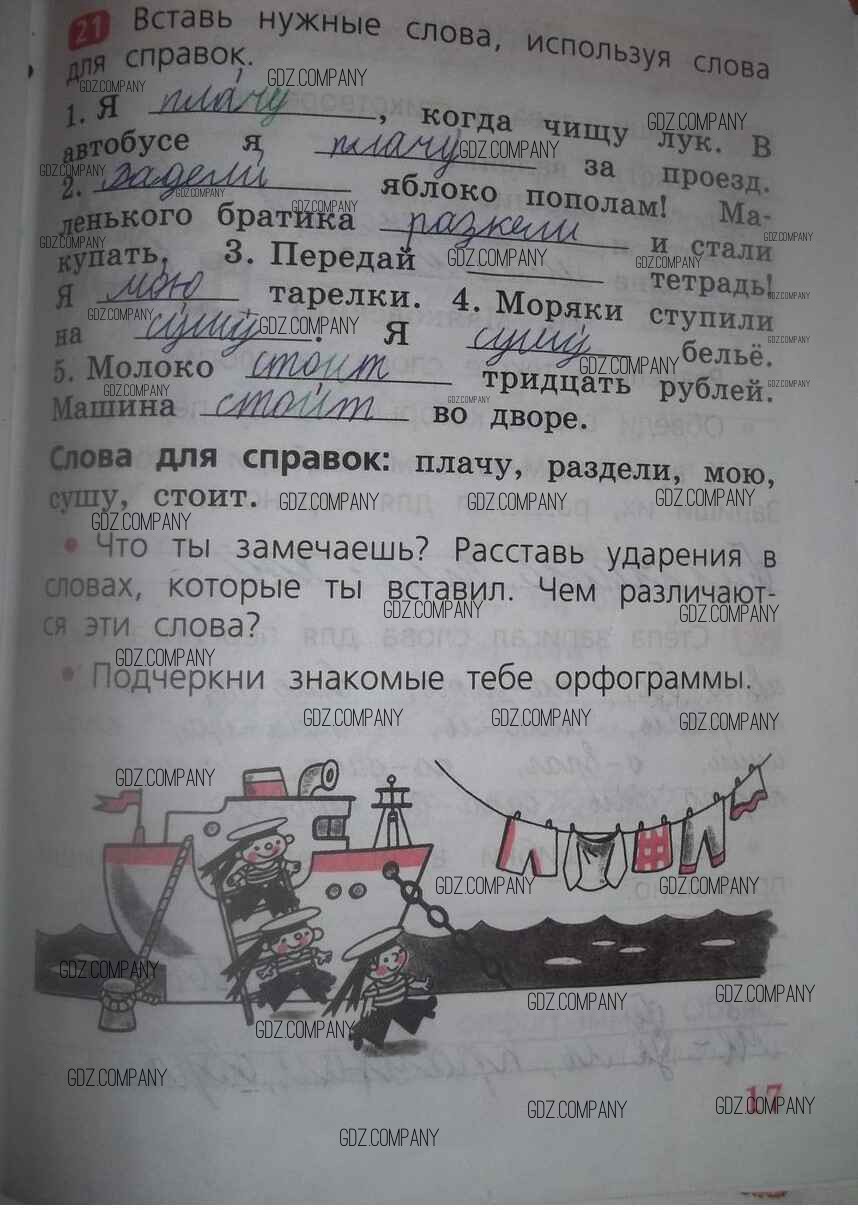 21 Вставь нужные слова, используя слова
для справок.
1. Я плачу, когда чищу лук. В
автобусе я плачу за проезд.
2. задели яблоко пополам! Ма-
ленького братика разкели и стали
купать. 3. Передай тетрадь!
Я мою тарелки. 4. Моряки ступили
на сушу. Я сушу бельё.
5. Молоко стоит тридцать рублей.
Машина стоит во дворе.
Слова для справок: плачу, раздели, мою,
сушу, стоит.
• Что ты замечаешь? Расставь ударения в
словах, которые ты вставил. Чем различают-
ся эти слова?
• Подчеркни знакомые тебе орфограммы.
17
GDZ.COMPANY